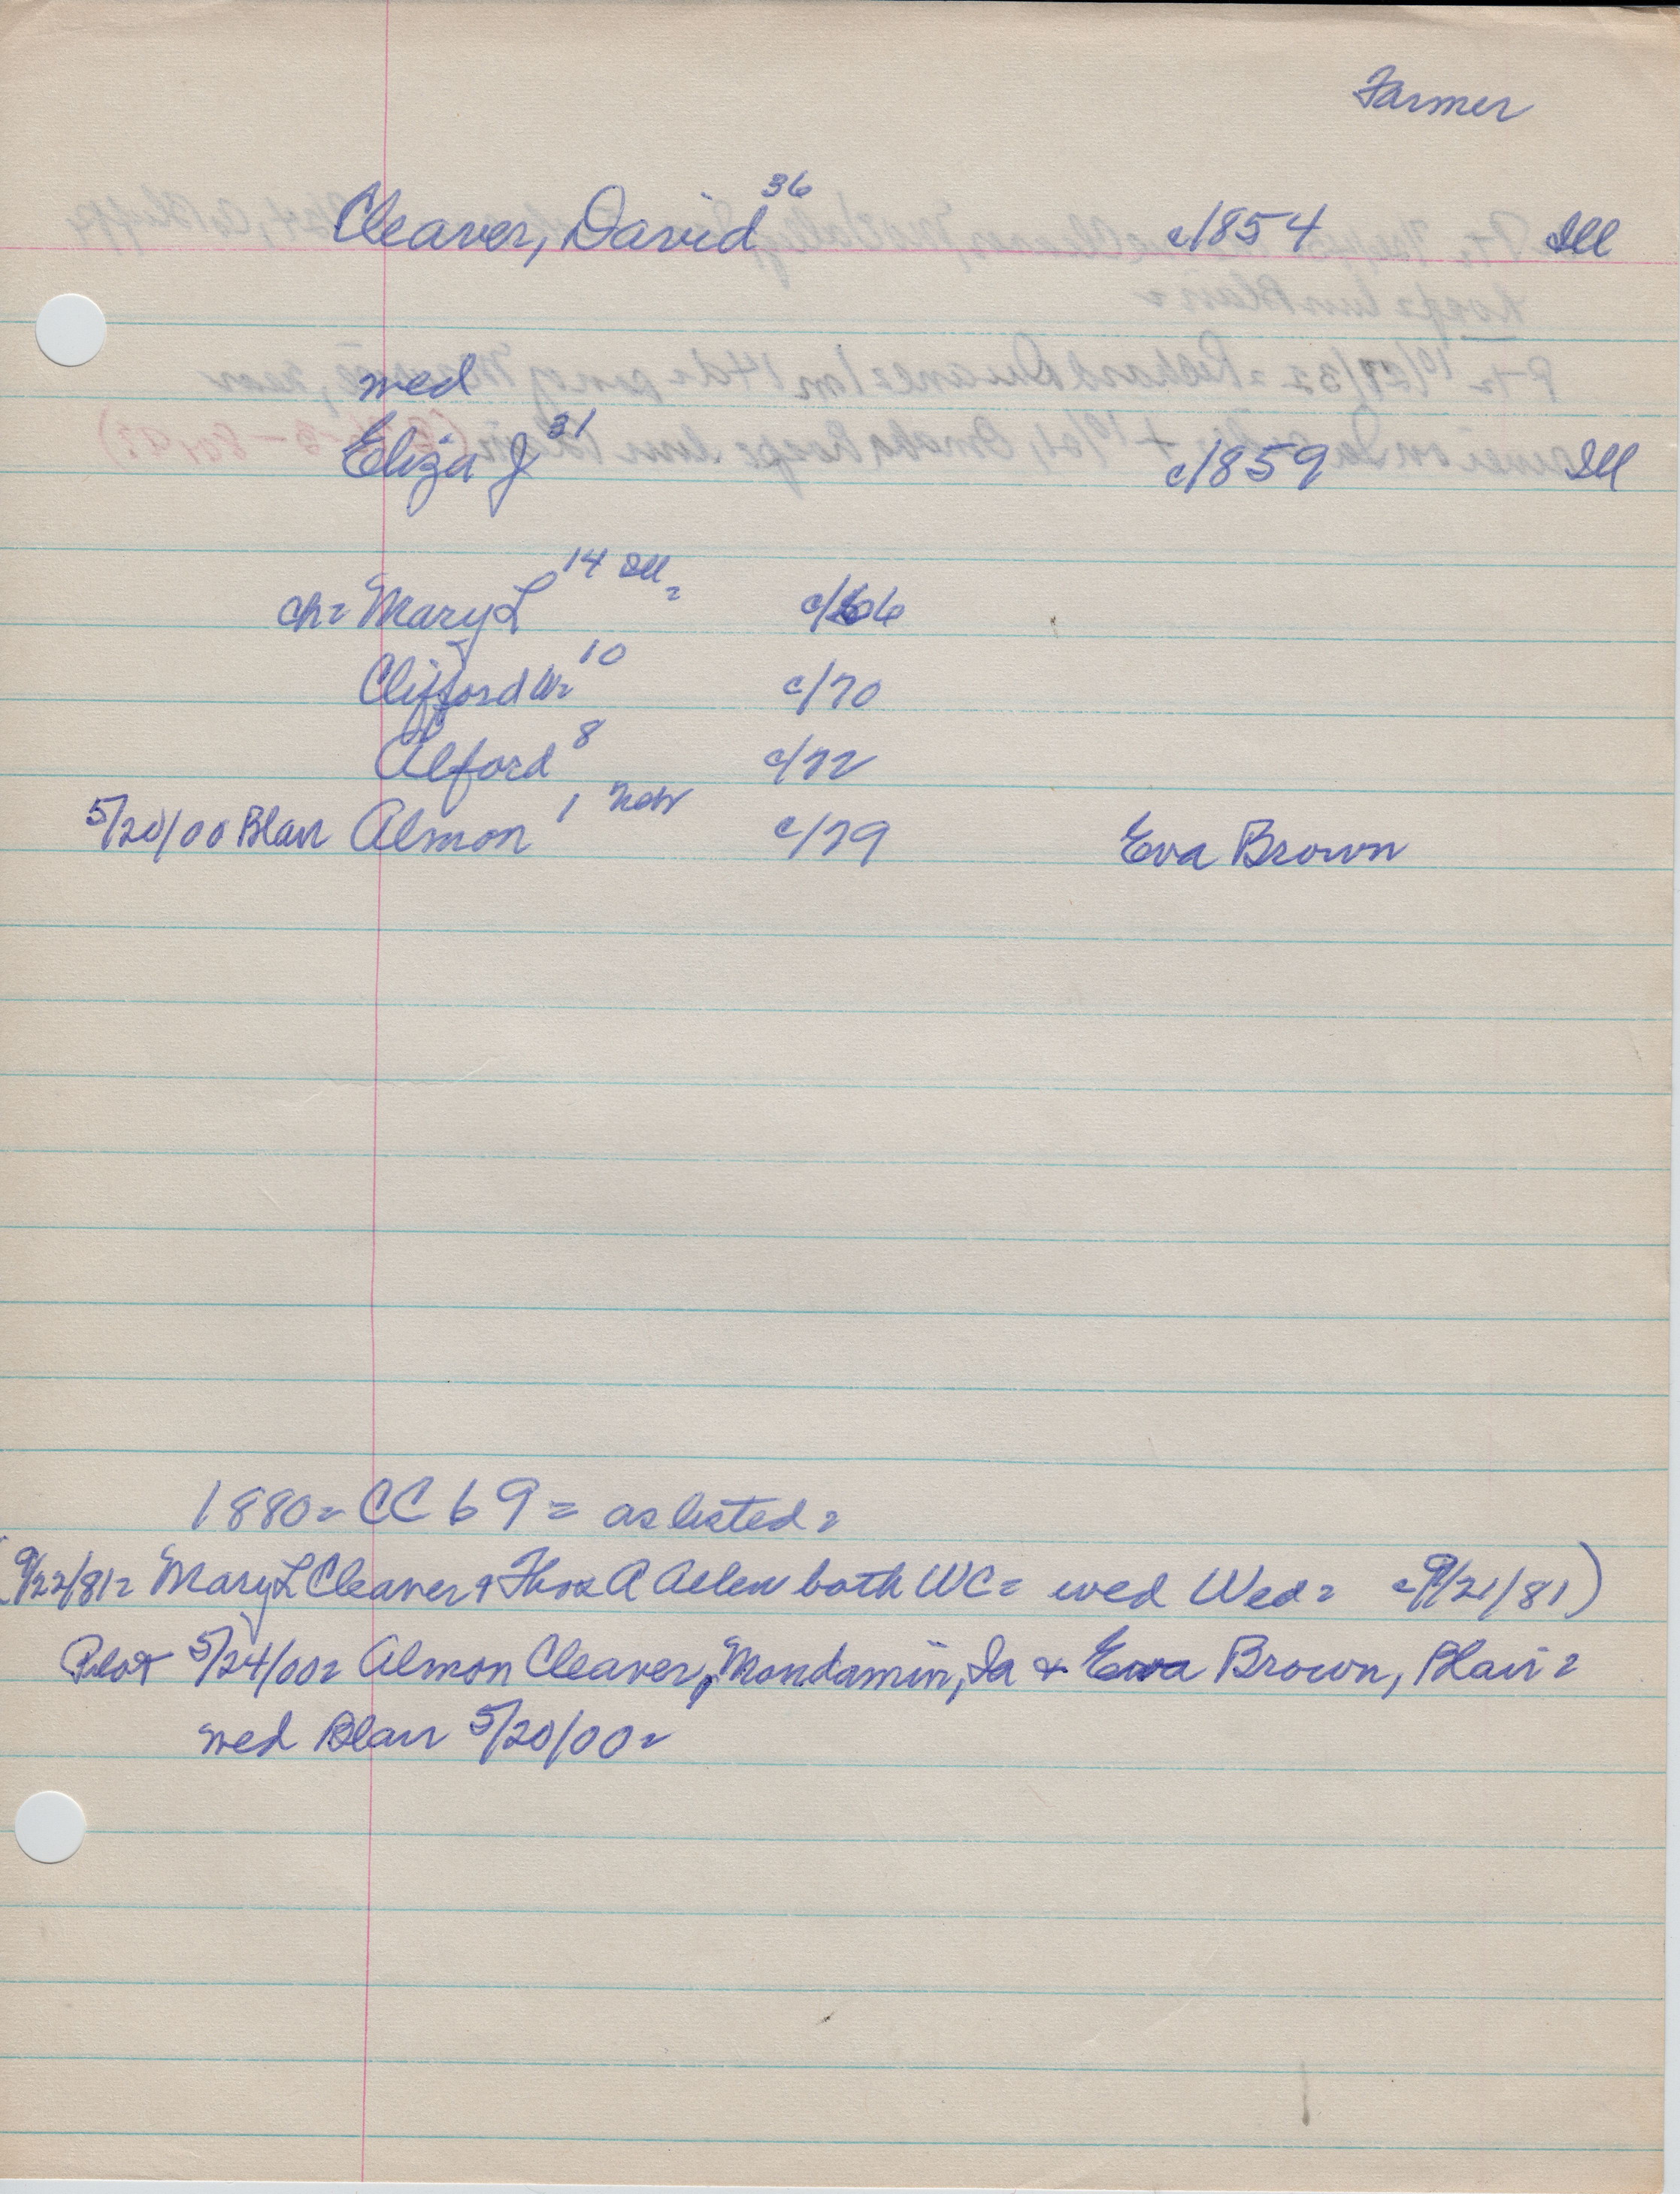 Farmer
Cleaver, David 36 c/1854 Ill
wed
Eliza J 31 c/1859 Ill
ch= Mary L 14 Ill= c/66
Clifford W= 10 c/70
Alford 8 c/72
5/20/00 Blair Almon 1 Nebr c/79 Eva Brown
1880= CC 69= as listed=
(9/22/81= Mary L Cleaver & Thos A Allen both WC= wed Wed= =9/21/81)
Pilot 5/24/00= Almon Cleaver, Mondamin, Ia & Eva Brown, Blair=
wed Blair 5/20/00=